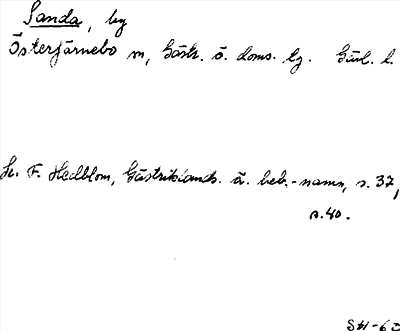 Sanda, by
Österfärnebo sn, Gästr. ö. doms. tg. Gävl. l.
Se. F. Hedblom, Gästriklands ä. beb.-namn, s. 37,
s. 40.
SH-63